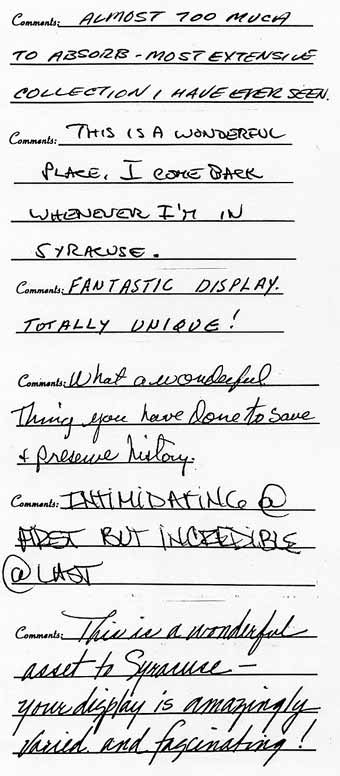 Comments: ALMOST TOO MUCH
TO ABSORB - MOST EXTENSIVE
COLLECTION I HAVE EVER SEEN.
Comments: THIS IS A WONDERFUL
PLACE, I COME BACK
WHENEVER I'M IN
SYRACUSE.
Comments: FANTASTIC DISPLAY.
TOTALLY UNIQUE!
Comments: What a wonderful
Thing you have done to save
+ preserve history.
Comments: INTIMIDATING @
FIRST BUT INCREDIBLE
@ LAST
Comments: This is a wonderful
asset to Syracuse —
your display is amazingly
varied and fascinating!